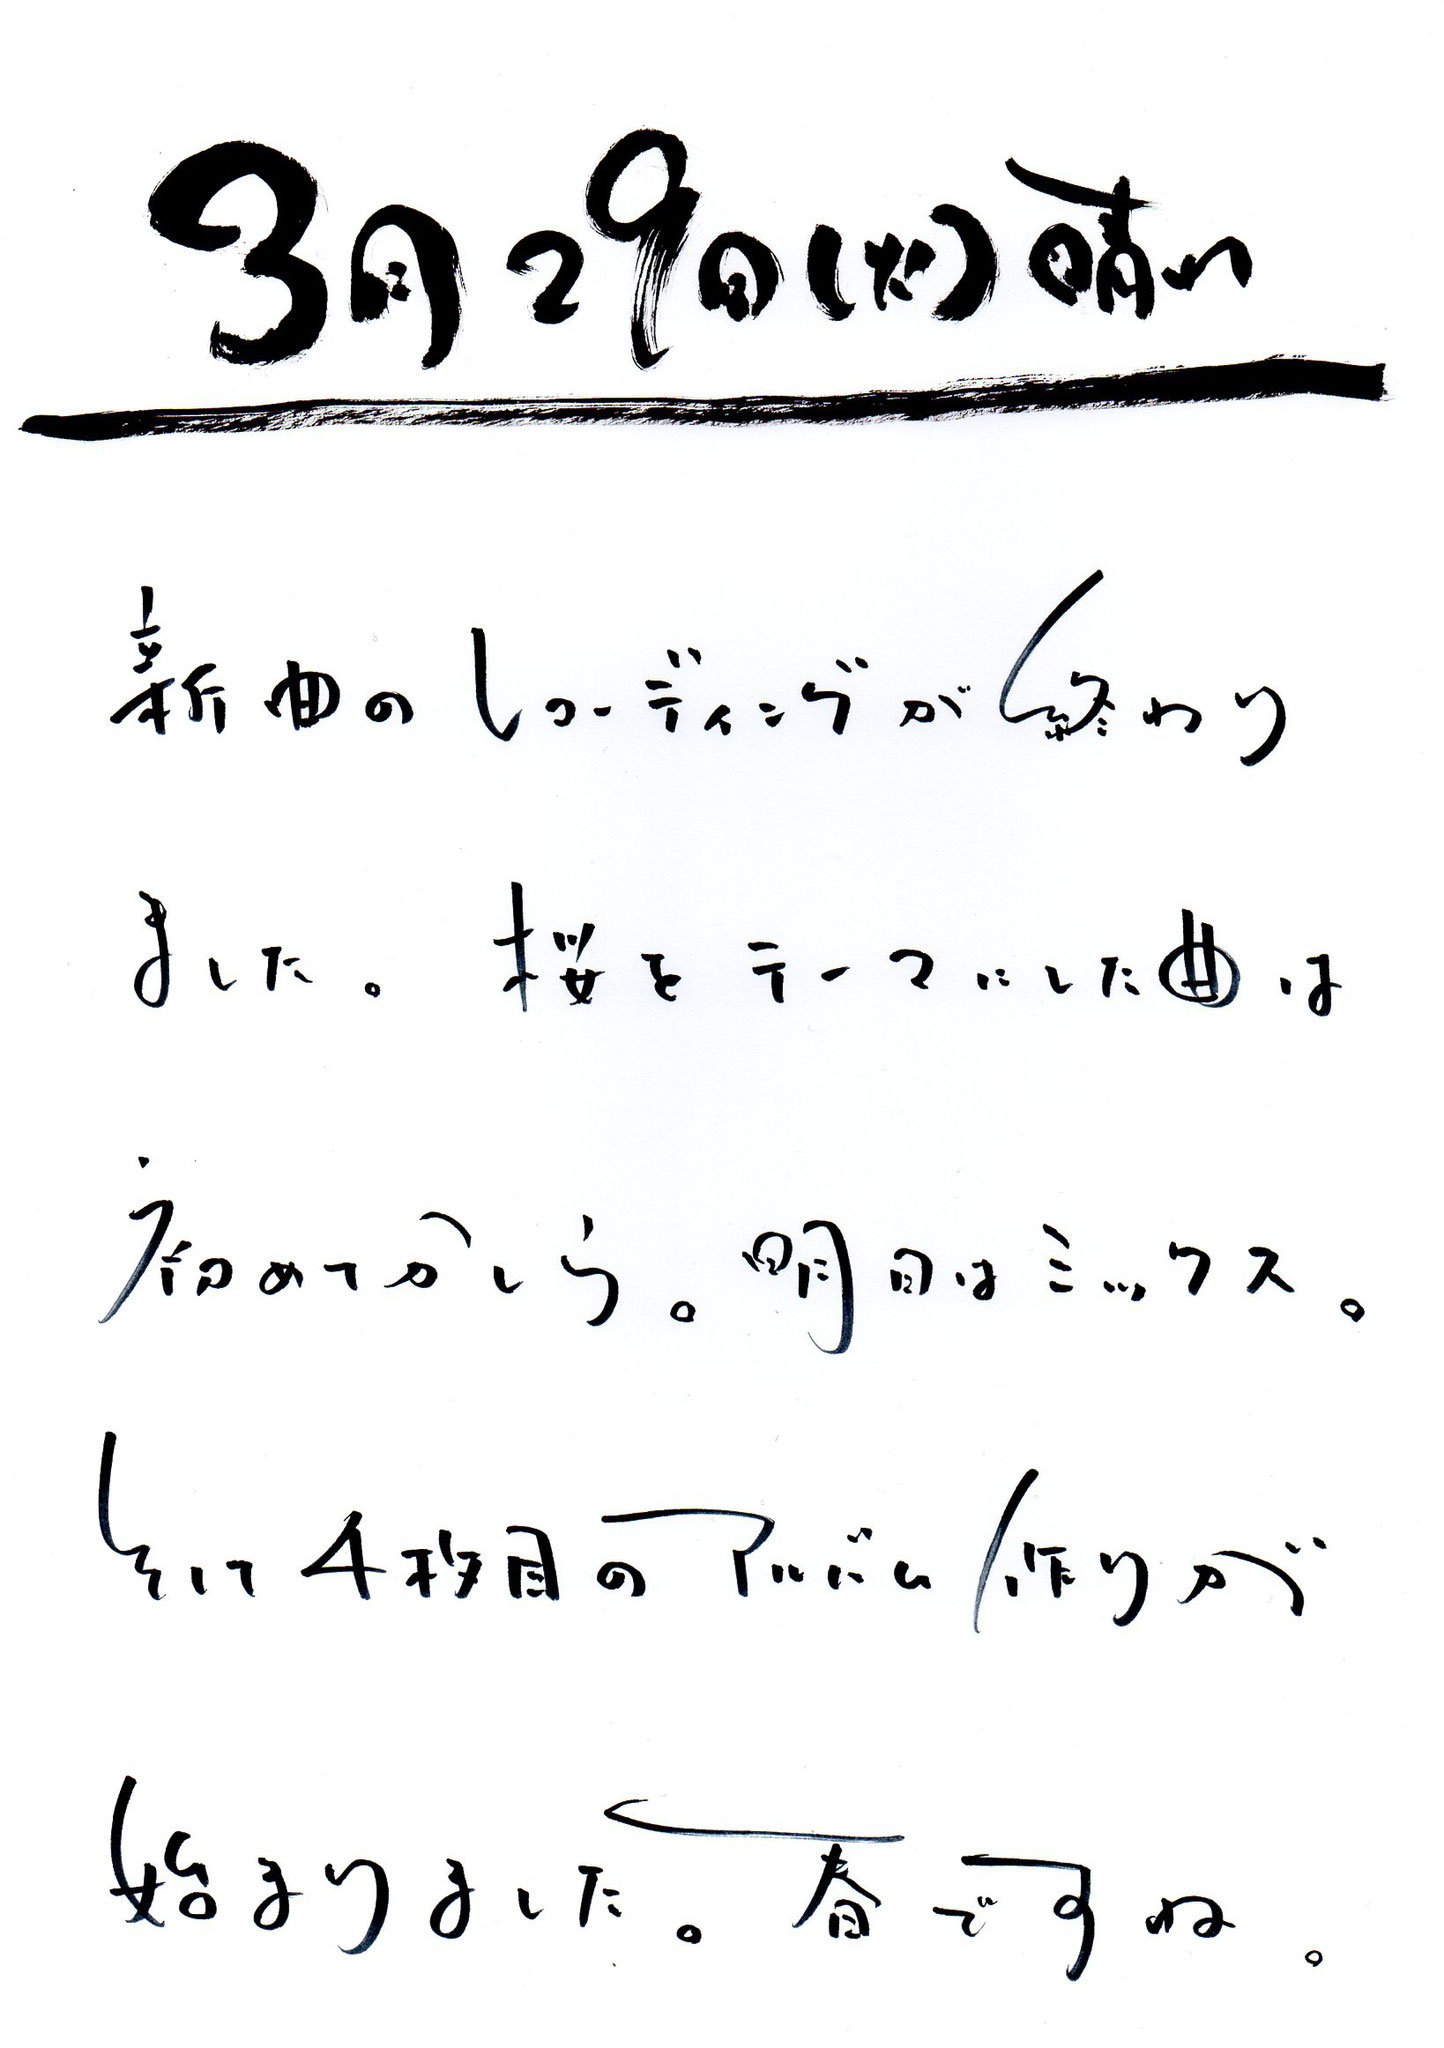 3月29日(火)晴れ
新曲のレコーディングが終わり
ました。桜をテーマにした曲は
初めてかしら。明日はミックス。
そして4枚目のアルバム作りが
始まりました。春ですね。